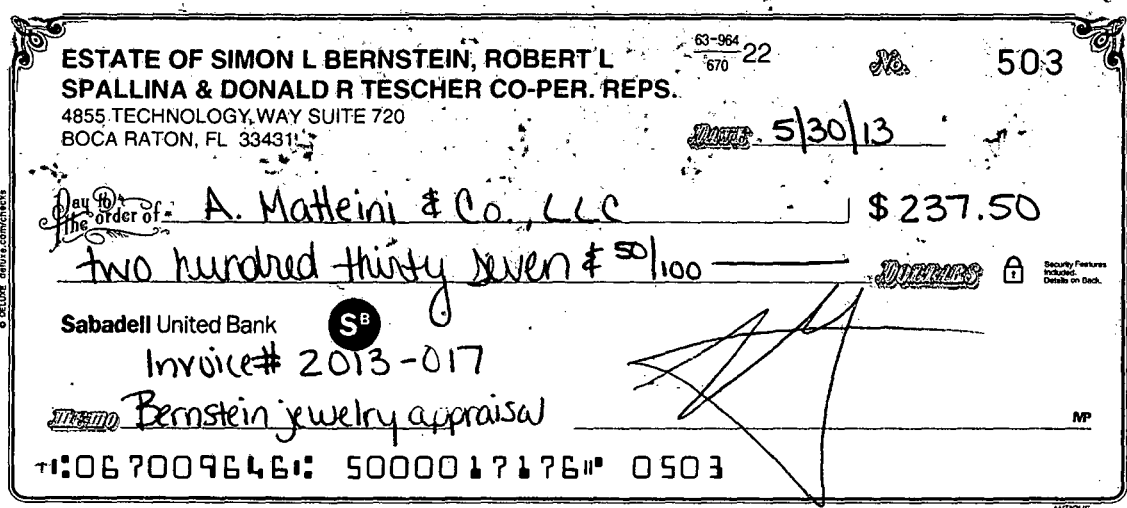 ESTATE OF SIMON L BERNSTEIN, ROBERT L
SPALLINA & DONALD R TESCHER CO-PER. REPS.
4855 TECHNOLOGY WAY SUITE 720
BOCA RATON, FL 33431
63-964
670 22
No. 503
DATE 5/30/13
Pay to the order of A. Matteini & Co., LLC $ 237.50
two hundred thirty seven & 50/100 DOLLARS
Security Features Included. Details on Back.
© DELUXE deluxe.com/checks
Sabadell United Bank SB
Invoice# 2013-017
Memo Bernstein jewelry appraisal
MP
⑆067009646⑆ 5000017176⑈ 0503
ANTIQUE